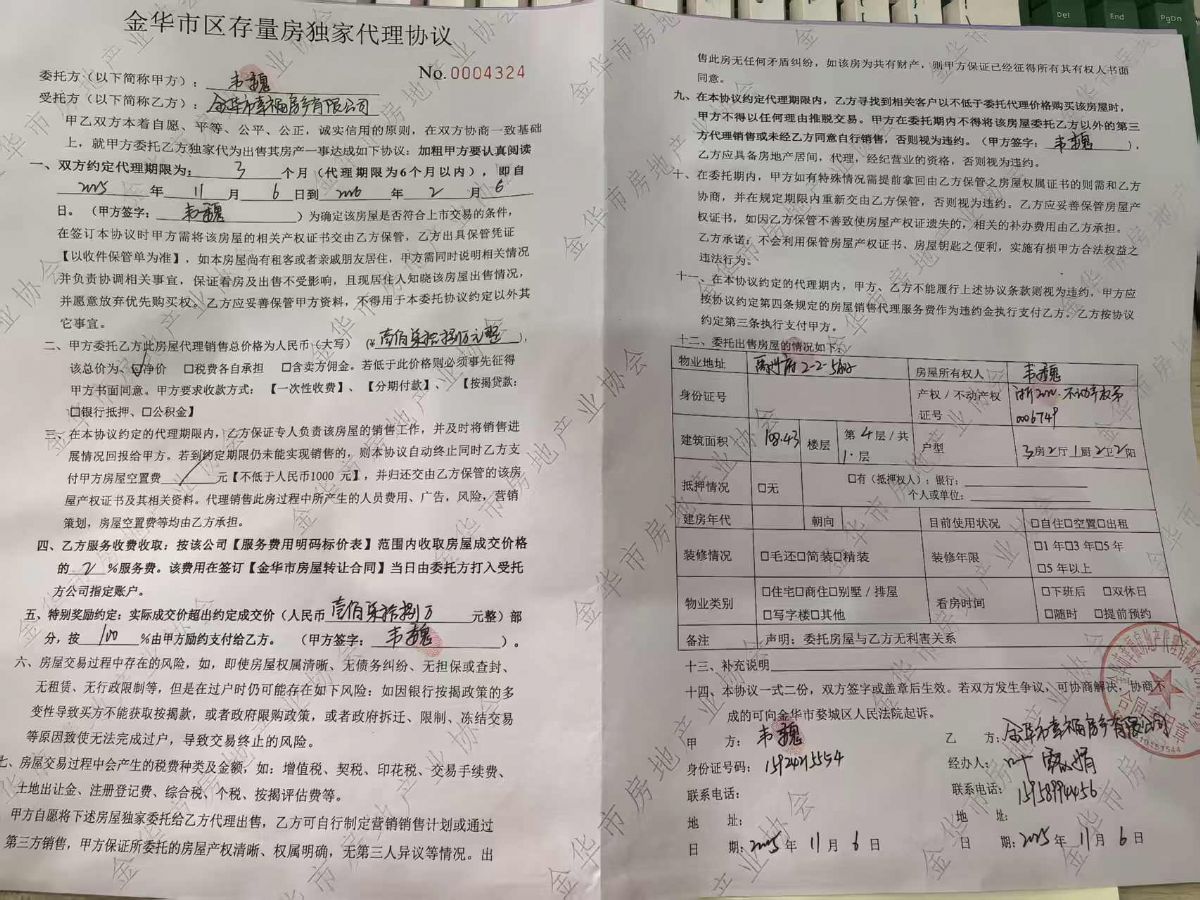 金华市区存量房独家代理协议
No.0004324
委托方（以下简称甲方）：韦巍
受托方（以下简称乙方）：金华市幸福房产有限公司
甲乙双方本着自愿、平等、公平、公正，诚实信用的原则，在双方协商一致基础
上，就甲方委托乙方独家代为出售其房产一事达成如下协议：加粗甲方要认真阅读
一、双方约定代理期限为：3个月（代理期限为6个月以内），即自
2025年11月6日到2026年2月6
日。（甲方签字：韦巍）为确定该房屋是否符合上市交易的条件，
在签订本协议时甲方需将该房屋的相关产权证书交由乙方保管，乙方出具保管凭证
【以收件保管单为准】，如本房屋尚有租客或者亲戚朋友居住，甲方需同时说明相关情况
并负责协调相关事宜，保证看房及出售不受影响，且现居住人知晓该房屋出售情况，
并愿意放弃优先购买权。乙方应妥善保管甲方资料，不得用于本委托协议约定以外其
它事宜。
二、甲方委托乙方此房屋代理销售总价格为人民币（大写）（¥壹佰柒拾捌万元整），
该总价为、☑净价 □税费各自承担 □含卖方佣金。若低于此价格则必须事先征得
甲方书面同意。甲方要求收款方式：【一次性收费】、【分期付款】、【按揭贷款：
□银行抵押、□公积金】
三、在本协议约定的代理期限内，乙方保证专人负责该房屋的销售工作，并及时将销售进
展情况回报给甲方。若到约定期限仍未能实现销售的，则本协议自动终止同时乙方支
付甲方房屋空置费 元【不低于人民币1000 元】，并归还交由乙方保管的该房
屋产权证书及其相关资料。代理销售此房过程中所产生的人员费用、广告，风险，营销
策划，房屋空置费等均由乙方承担。
四、乙方服务收费收取：按该公司【服务费用明码标价表】范围内收取房屋成交价格
的2%服务费。该费用在签订【金华市房屋转让合同】当日由委托方打入受托
方公司指定账户。
五、特别奖励约定：实际成交价超出约定成交价（人民币壹佰柒拾捌万元整）部
分，按100%由甲方励约支付给乙方。（甲方签字：韦巍）。
六、房屋交易过程中存在的风险，如，即使房屋权属清晰、无债务纠纷、无担保或查封、
无租赁、无行政限制等，但是在过户时仍可能存在如下风险：如因银行按揭政策的多
变性导致买方不能获取按揭款，或者政府限购政策，或者政府拆迁、限制、冻结交易
等原因致使无法完成过户，导致交易终止的风险。
七、房屋交易过程中会产生的税费种类及金额，如：增值税、契税、印花税、交易手续费、
土地出让金、注册登记费、综合税、个税、按揭评估费等。
甲方自愿将下述房屋独家委托给乙方代理出售，乙方可自行制定营销销售计划或通过
第三方销售，甲方保证所委托的房屋产权清晰、权属明确，无第三人异议等情况。出
售此房无任何矛盾纠纷，如该房为共有财产，则甲方保证已经征得所有其有权人书面
同意。
九、在本协议约定代理期限内，乙方寻找到相关客户以不低于委托代理价格购买该房屋时，
甲方不得以任何理由推脱交易。甲方在委托期内不得将该房屋委托乙方以外的第三
方代理销售或未经乙方同意自行销售，否则视为违约。（甲方签字：韦巍），
乙方应具备房地产居间，代理，经纪营业的资格，否则视为违约。
十、在委托期内，甲方如有特殊情况需提前拿回由乙方保管之房屋权属证书的则需和乙方
协商，并在规定期限内重新交由乙方保管，否则视为违约。乙方应妥善保管房屋产
权证书，如因乙方保管不善致使房屋产权证遗失的，相关的补办费用由乙方承担。
乙方承诺：不会利用保管房屋产权证书、房屋钥匙之便利，实施有损甲方合法权益之
违法行为。
十一、在本协议约定的代理期内，甲方、乙方不能履行上述协议条款则视为违约，甲方应
按协议约定第四条规定的房屋销售代理服务费作为违约金执行支付乙方。乙方按协议
约定第三条执行支付甲方。
十二、委托出售房屋的情况如下：
物业地址 2-2-502 房屋所有权人 韦巍
身份证号 产权/不动产权证号 浙2022.不动产权第0006749
建筑面积 108.43 楼层 第4层/共1.层 户型 3房2厅1厨2卫2阳
抵押情况 □无 □有（抵押权人）：银行： 个人或单位：
建房年代 朝向 目前使用状况 □自住□空置□出租
装修情况 □毛还□简装□精装 装修年限 □1年□3年□5年 □5年以上
物业类别 □住宅□商住□别墅/排屋 □写字楼□其他 看房时间 □下班后 □双休日 □随时 □提前预约
备注 声明：委托房屋与乙方无利害关系
十三、补充说明
十四、本协议一式二份，双方签字或盖章后生效。若双方发生争议，可协商解决，协商不
成的可向金华市婺城区人民法院起诉。
甲 方：韦巍 乙 方：金华市幸福房产有限公司
身份证号码：15924215554 经办人：叶 娟
联系电话： 联系电话：15958994456
地 址： 地 址：
日 期：2025年11月6日 日 期：2025年11月6日